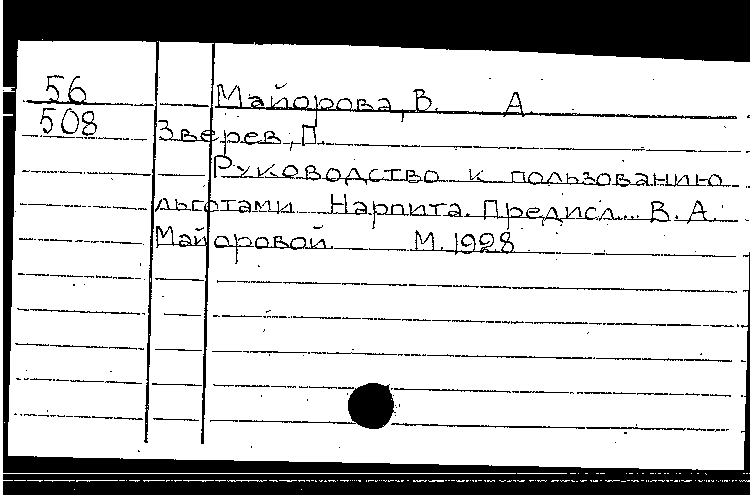 56 Майорова, В. А.
508 Зверев, П.
Руководство к пользованию
льготами Нарпита. Предисл. В. А.
Майоровой. М. 1928